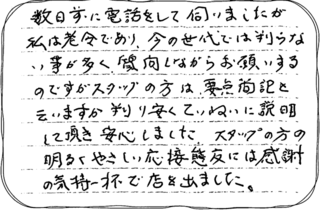 数日前に電話をして伺いましたが
私は老令であり、今の世代では判らな
い事が多く質問しながらお願いする
のですがスタッフの方は、要点箇記と
云いますか判り安くていねいに説明
して頂き安心しました スタッフの方の
明るくやさしい応接態度には感謝
の気持一杯で店を出ました。